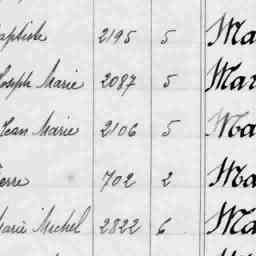 aptiste 2195 5 Ma
Joseph Marie 2087 5 Mar
Jean Marie 2106 5 Ma
erre 702 2 Ma
Marie Michel 2822 6 Ma